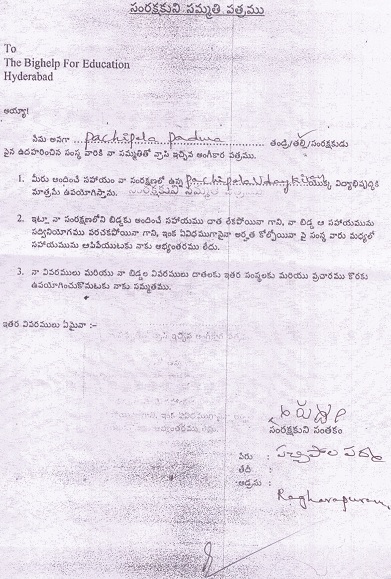 సంరక్షకుని సమ్మతి పత్రము
To
The Bighelp For Education
Hyderabad
అయ్యా!
నేను అనగా Pachipala Padma తండ్రి/తల్లి/సంరక్షకుడు
పైన ఉదహరించిన సంస్థ వారికి నా సమ్మతితో వ్రాసి ఇచ్చిన అంగీకార పత్రము.
1. మీరు అందించే సహాయం నా సంరక్షణలో ఉన్న Pachipala యొక్క విద్యాభివృద్ధికి
మాత్రమే ఉపయోగిస్తాను.
2. ఇట్లూ నా సంరక్షణలోని బిడ్డకు అందించే సహాయము దాత లేకపోయినా గాని, నా బిడ్డ ఆ సహాయమును
సద్వినియోగము పరచకపోయినా గాని, ఇంక ఏవిధముగానైనా అర్హత కోల్పోయినా పై సంస్థ వారు మధ్యలో
సహాయమును ఆపివేయుటకు నాకు అభ్యంతరము లేదు.
3. నా వివరములు మరియు నా బిడ్డల వివరములు దాతలకు ఇతర సంస్థలకు మరియు ప్రచారము కొరకు
ఉపయోగించుకొనుటకు నాకు సమ్మతము.
ఇతర వివరములు ఏమైనా :–
సంరక్షకుని సంతకం
పేరు : పచ్చిపాల పద్మ
తేదీ :
అడ్రసు : Ragharapuram